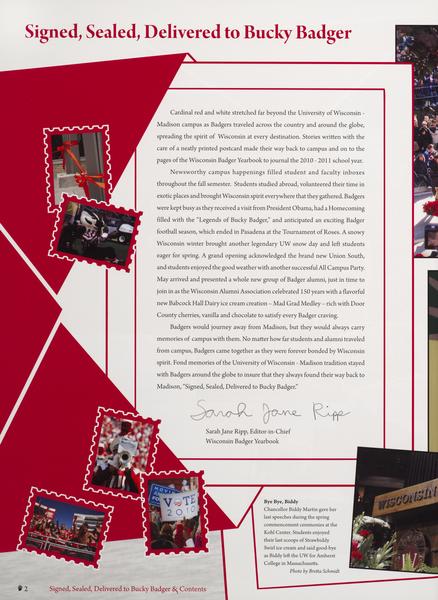 Signed, Sealed, Delivered to Bucky Badger
Cardinal red and white stretched far beyond the University of Wisconsin -
Madison campus as Badgers traveled across the country and around the globe,
spreading the spirit of Wisconsin at every destination. Stories written with the
care of a neatly printed postcard made their way back to campus and on to the
pages of the Wisconsin Badger Yearbook to journal the 2010 - 2011 school year.
Newsworthy campus happenings filled student and faculty inboxes
throughout the fall semester. Students studied abroad, volunteered their time in
exotic places and brought Wisconsin spirit everywhere that they gathered. Badgers
were kept busy as they received a visit from President Obama, had a Homecoming
filled with the "Legends of Bucky Badger," and anticipated an exciting Badger
football season, which ended in Pasadena at the Tournament of Roses. A snowy
Wisconsin winter brought another legendary UW snow day and left students
eager for spring. A grand opening acknowledged the brand new Union South,
and students enjoyed the good weather with another successful All Campus Party.
May arrived and presented a whole new group of Badger alumni, just in time to
join in as the Wisconsin Alumni Association celebrated 150 years with a flavorful
new Babcock Hall Dairy ice cream creation – Mad Grad Medley – rich with Door
County cherries, vanilla and chocolate to satisfy every Badger craving.
Badgers would journey away from Madison, but they would always carry
memories of campus with them. No matter how far students and alumni traveled
from campus, Badgers came together as they were forever bonded by Wisconsin
spirit. Fond memories of the University of Wisconsin - Madison tradition stayed
with Badgers around the globe to insure that they always found their way back to
Madison, "Signed, Sealed, Delivered to Bucky Badger."
Sarah Jane Ripp
Sarah Jane Ripp, Editor-in-Chief
Wisconsin Badger Yearbook
VOTE
2010
Bye Bye, Biddy
Chancellor Biddy Martin gave her
last speeches during the spring
commencement ceremonies at the
Kohl Center. Students enjoyed
their last scoops of Strawbiddy
Swirl ice cream and said good-bye
as Biddy left the UW for Amherst
College in Massachusetts.
Photo by Bretta Schmidt
WISCONSIN
2 Signed, Sealed, Delivered to Bucky Badger & Contents